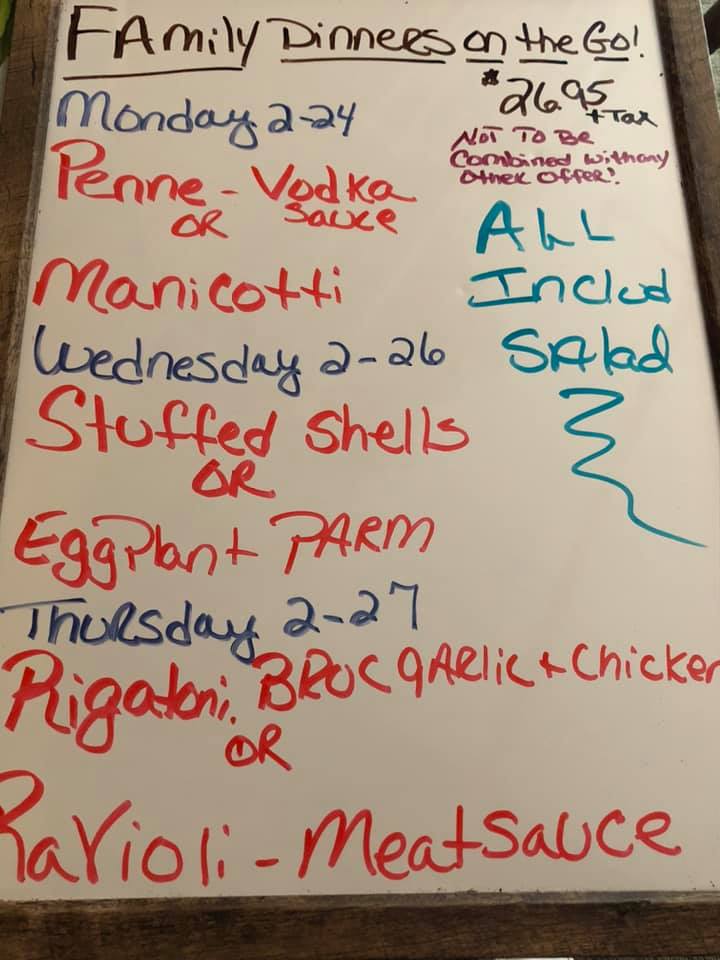 FAmily Dinners on the Go!
$26.95
+ Tax
Monday 2-24
NOT TO BE
Combined with any
other offer!
Penne - Vodka
OR Sauce
Manicotti
ALL
Includ
SAlad
Wednesday 2-26
Stuffed Shells
OR
EggPlant PARM
Thursday 2-27
Rigatoni, BROC gARlic + Chicken
OR
Ravioli - Meatsauce